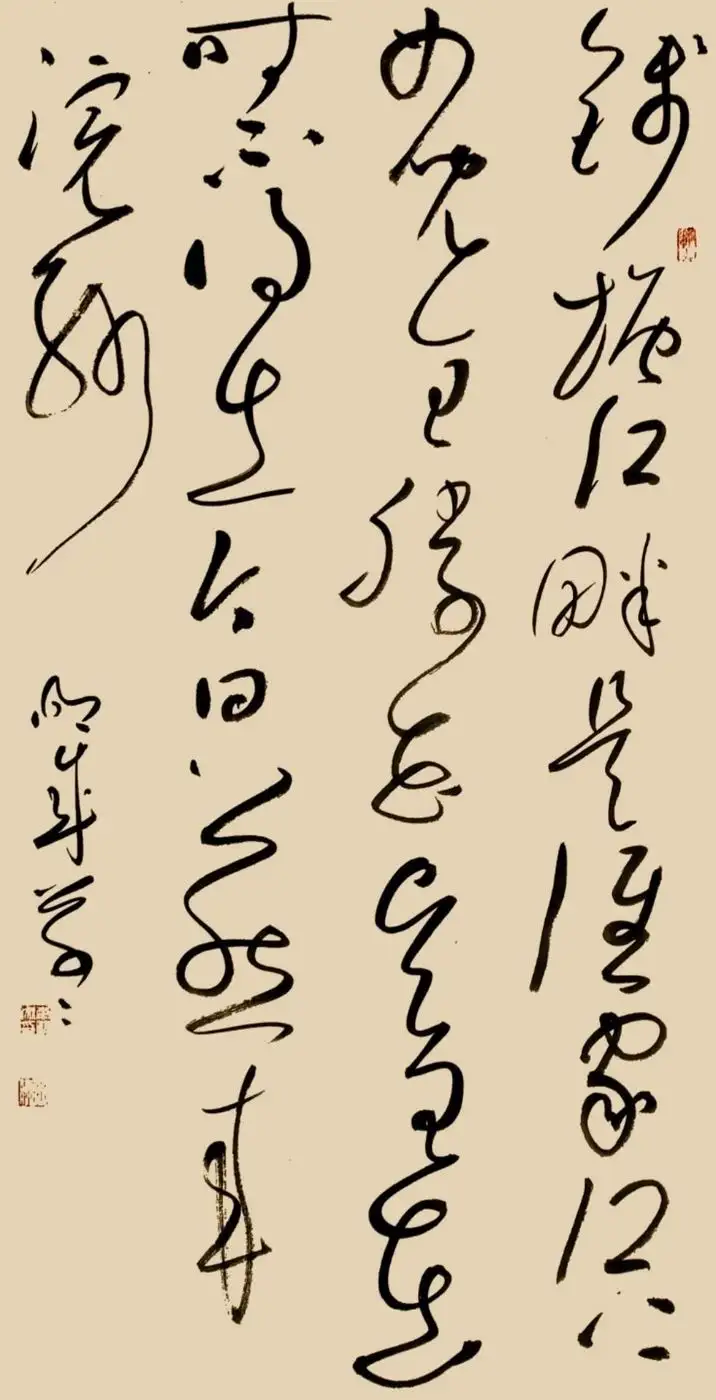 錢塘江畔是誰家江上
女兒全勝花吳王在
時不得出今日公然來
浣紗